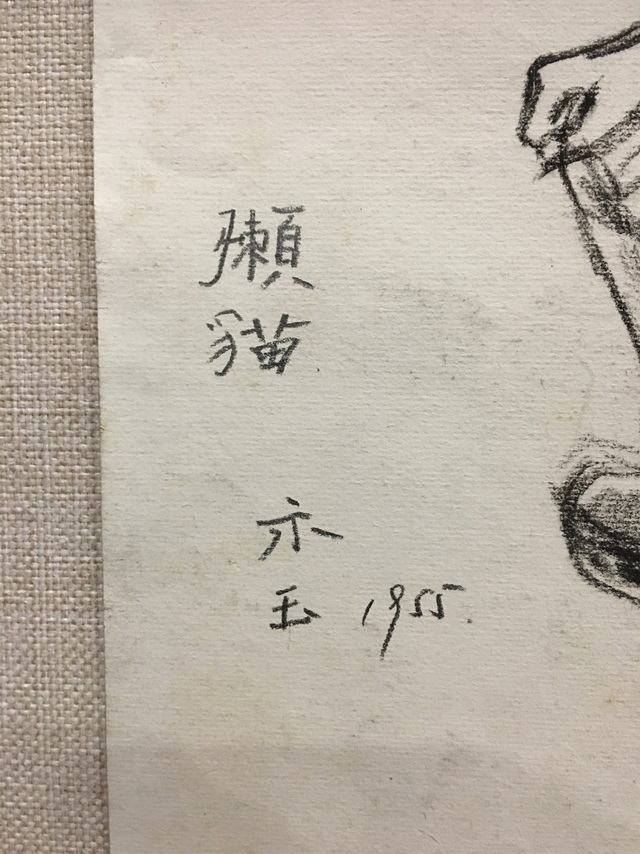 懶
貓
亦
玉 1955.